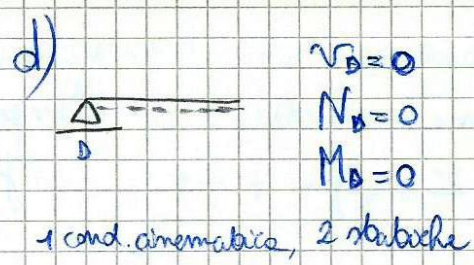 d)
D
v_D=0
N_D=0
M_D=0
1 cond. cinematica, 2 statiche